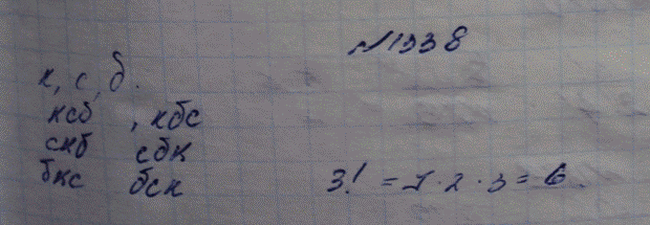 №1338
к, с, б.
ксб , кбс
скб сбк
бкс бск
3! = 1 · 2 · 3 = 6.